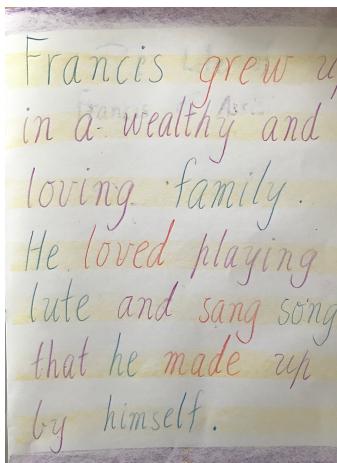 Francis grew up
in a wealthy and
loving family.
He loved playing
lute and sang song
that he made up
by himself.